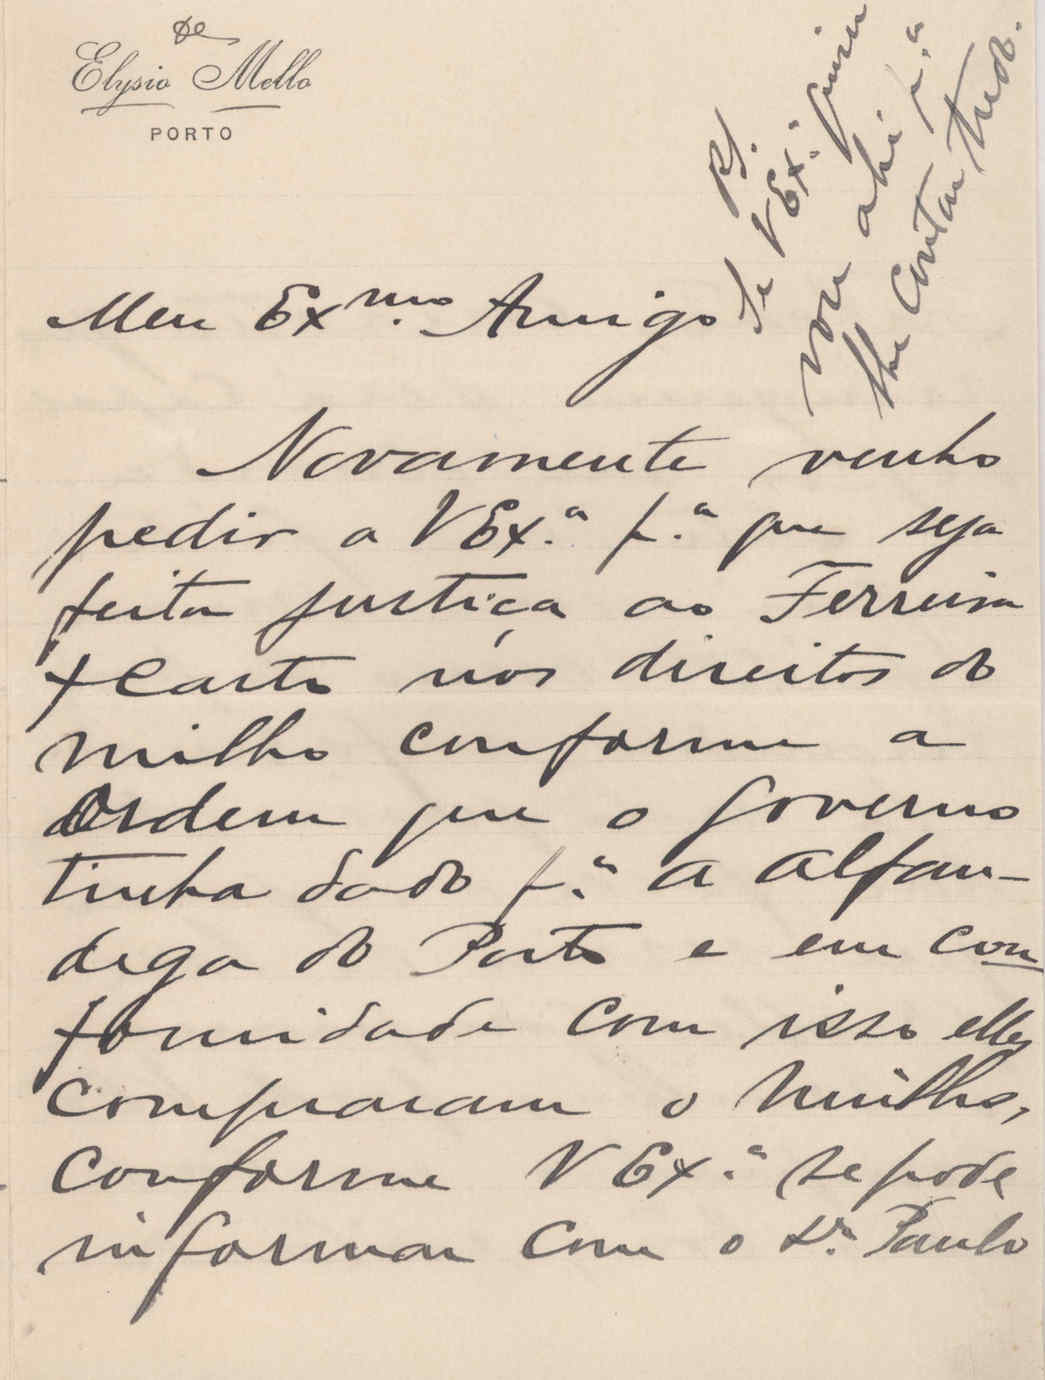 de
Elysio Mello
PORTO
PS.
Se VEx.ª quiser
vou ahi p.ª
lhe contar tudo.
Meu Exmo. Amigo
Novamente venho
pedir a VEx.ª p.ª que seja
feita justiça ao Ferreira
& Casto nos direitos do
milho conforme a
Ordem que o Governo
tinha dado p.ª a Alfan-
dega do Porto e em con
formidade com isso elles
compraram o milho,
conforme VEx.ª se pode
informar com o Dr. Paulo